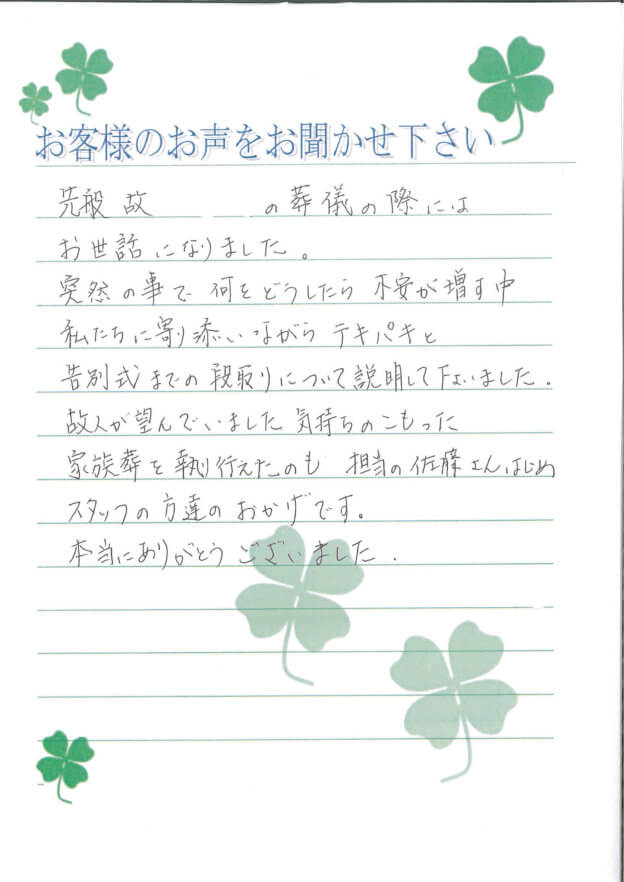 お客様のお声をお聞かせ下さい
先般 故 の葬儀の際には
お世話になりました。
突然の事で 何をどうしたら 不安が増す中
私たちに寄り添いながら テキパキと
告別式までの段取りについて説明して下さいました。
故人が望んでいました気持ちのこもった
家族葬を執り行えたのも 担当の佐藤さんはじめ
スタッフの方達のおかげです。
本当にありがとうございました.